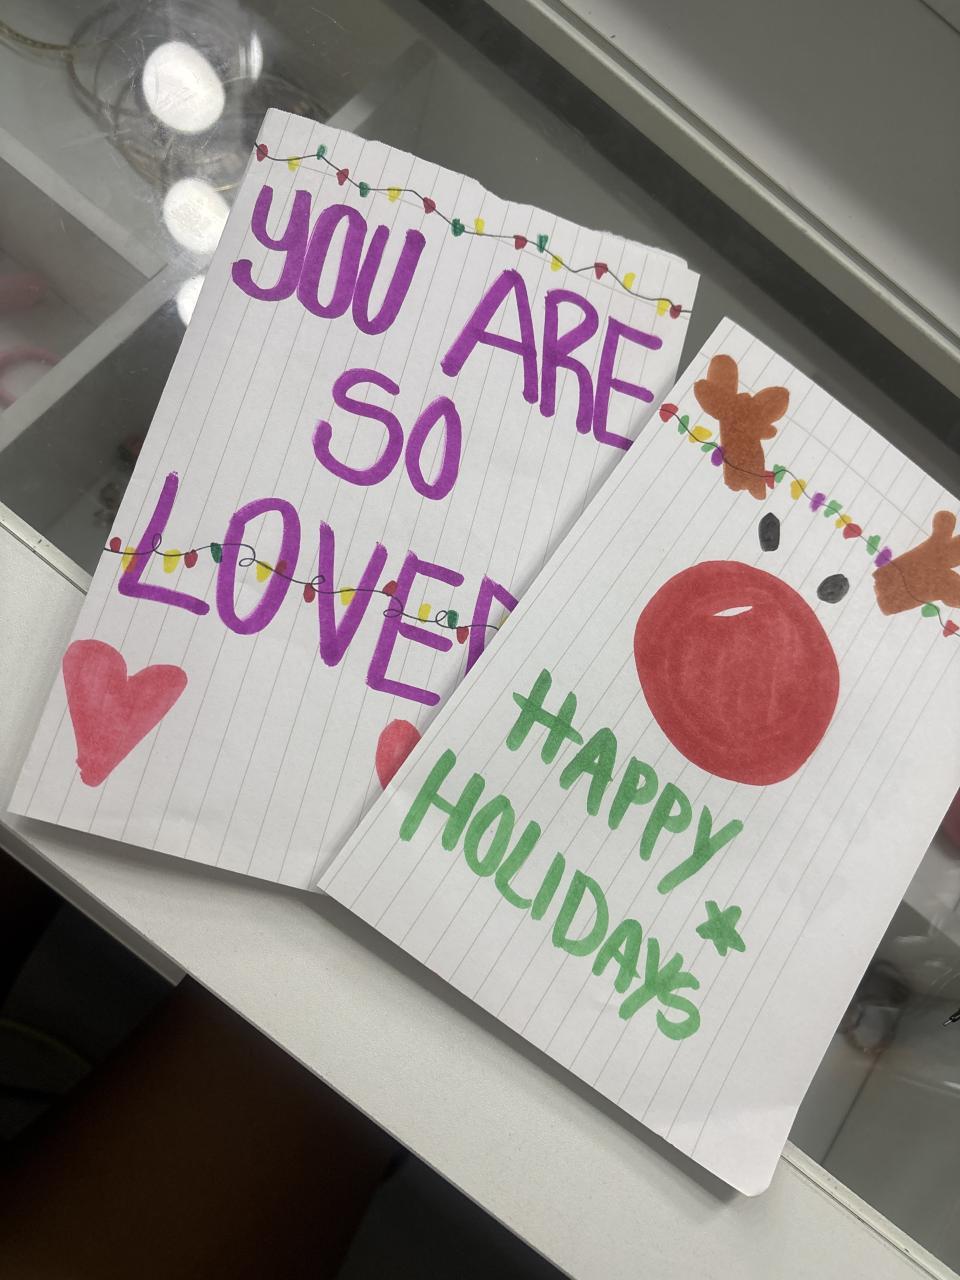 YOU ARE
SO
LOVED
HAPPY
HOLIDAYS